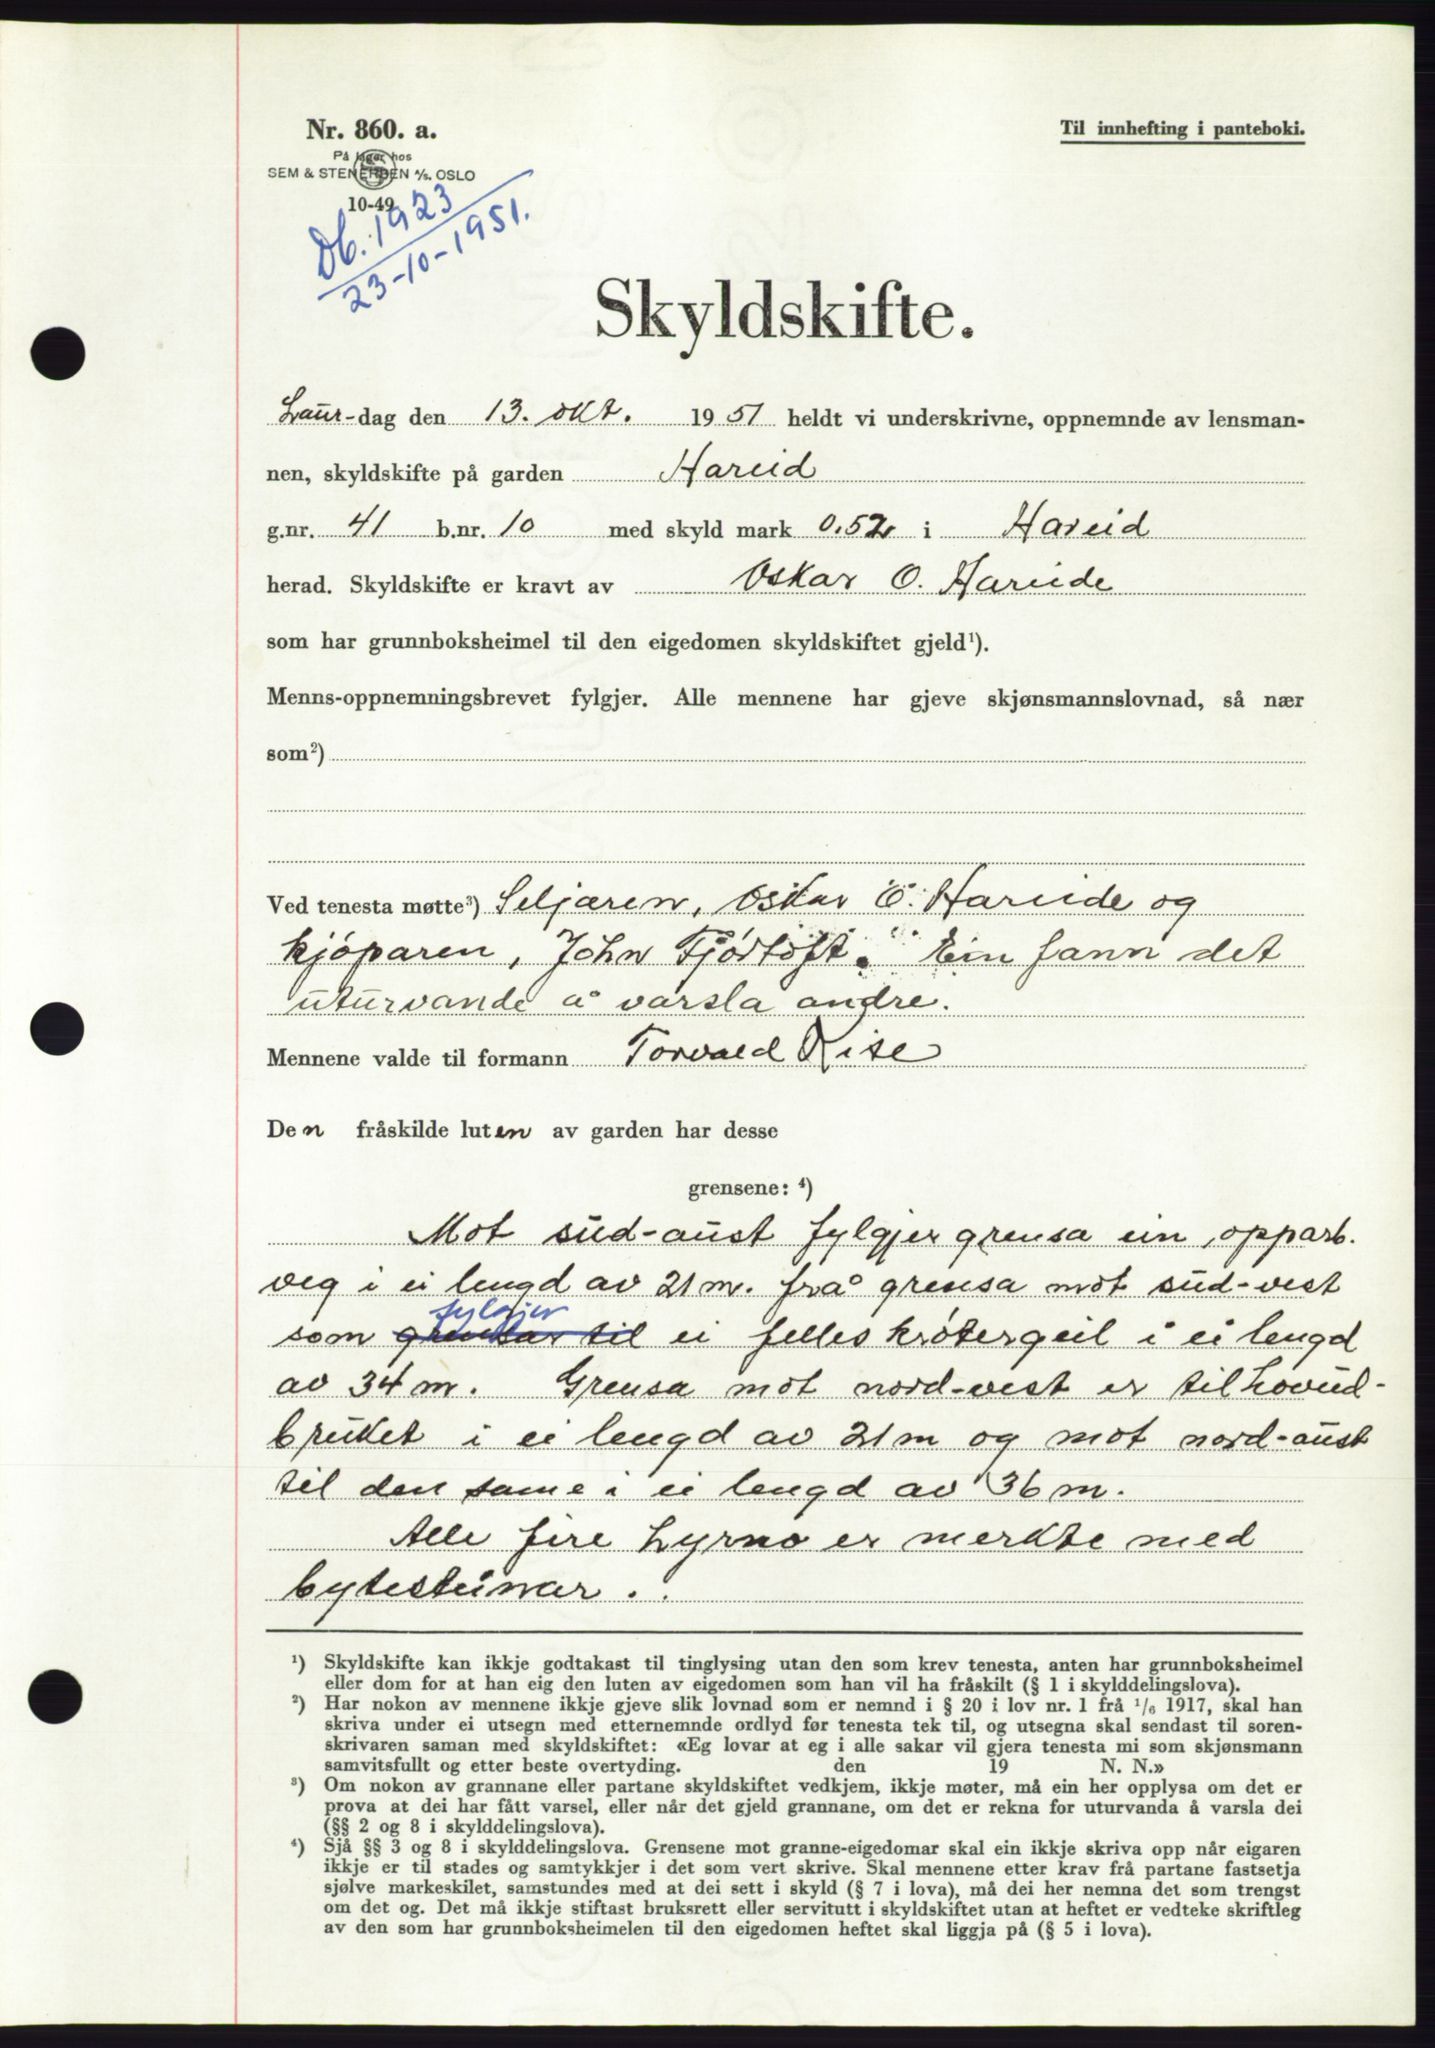 Nr. 860. a.
Til innhefting i panteboki.
På lager hos
SEM & STENERSEN A/S. OSLO
10-49
Db. 1923
23-10-1951.
Skyldskifte.
Laur-dag den 13. okt. 1951 heldt vi underskrivne, oppnemnde av lensman-
nen, skyldskifte på garden Hareid
g.nr. 41 b.nr. 10 med skyld mark 0.52 i Hareid
herad. Skyldskifte er kravt av Oskar O. Hareide
som har grunnboksheimel til den eigedomen skyldskiftet gjeld¹).
Menns-oppnemningsbrevet fylgjer. Alle mennene har gjeve skjønsmannslovnad, så nær
som²)
Ved tenesta møtte³) Seljaren, Oskar O. Hareide og
kjöparen, John Fjörtoft. Ein fann det
uturvande å varsla andre.
Mennene valde til formann Torvald Rise
Den fråskilde luten av garden har desse
grensene: ⁴)
Mot süd-aust fylgjer grensa ein opparb.
veg i ei lengd av 21 m. frå grensa mot süd-vest
fylgjer
som grensar til ei felles krötergeil i ei lengd
av 34 m. Grensa mot nord-vest er til hovud-
bruket i ei lengd av 21 m og mot nord-aust
til den same i ei lengd av 36 m.
Alle fire hyrno er merkte med
bytesteinar.
¹) Skyldskifte kan ikkje godtakast til tinglysing utan den som krev tenesta, anten har grunnboksheimel
eller dom for at han eig den luten av eigedomen som han vil ha fråskilt (§ 1 i skylddelingslova).
²) Har nokon av mennene ikkje gjeve slik lovnad som er nemnd i § 20 i lov nr. 1 frå ¹/₆ 1917, skal han
skriva under ei utsegn med etternemnde ordlyd før tenesta tek til, og utsegna skal sendast til soren-
skrivaren saman med skyldskiftet: «Eg lovar at eg i alle sakar vil gjera tenesta mi som skjønsmann
samvitsfullt og etter beste overtyding. den 19 N. N.»
³) Om nokon av grannane eller partane skyldskiftet vedkjem, ikkje møter, må ein her opplysa om det er
prova at dei har fått varsel, eller når det gjeld grannane, om det er rekna for uturvanda å varsla dei
(§§ 2 og 8 i skylddelingslova).
⁴) Sjå §§ 3 og 8 i skylddelingslova. Grensene mot granne-eigedomar skal ein ikkje skriva opp når eigaren
ikkje er til stades og samtykkjer i det som vert skrive. Skal mennene etter krav frå partane fastsetja
sjølve markeskilet, samstundes med at dei sett i skyld (§ 7 i lova), må dei her nemna det som trengst
om det og. Det må ikkje stiftast bruksrett eller servitutt i skyldskiftet utan at heftet er vedteke skriftleg
av den som har grunnboksheimelen til den eigedomen heftet skal liggja på (§ 5 i lova).